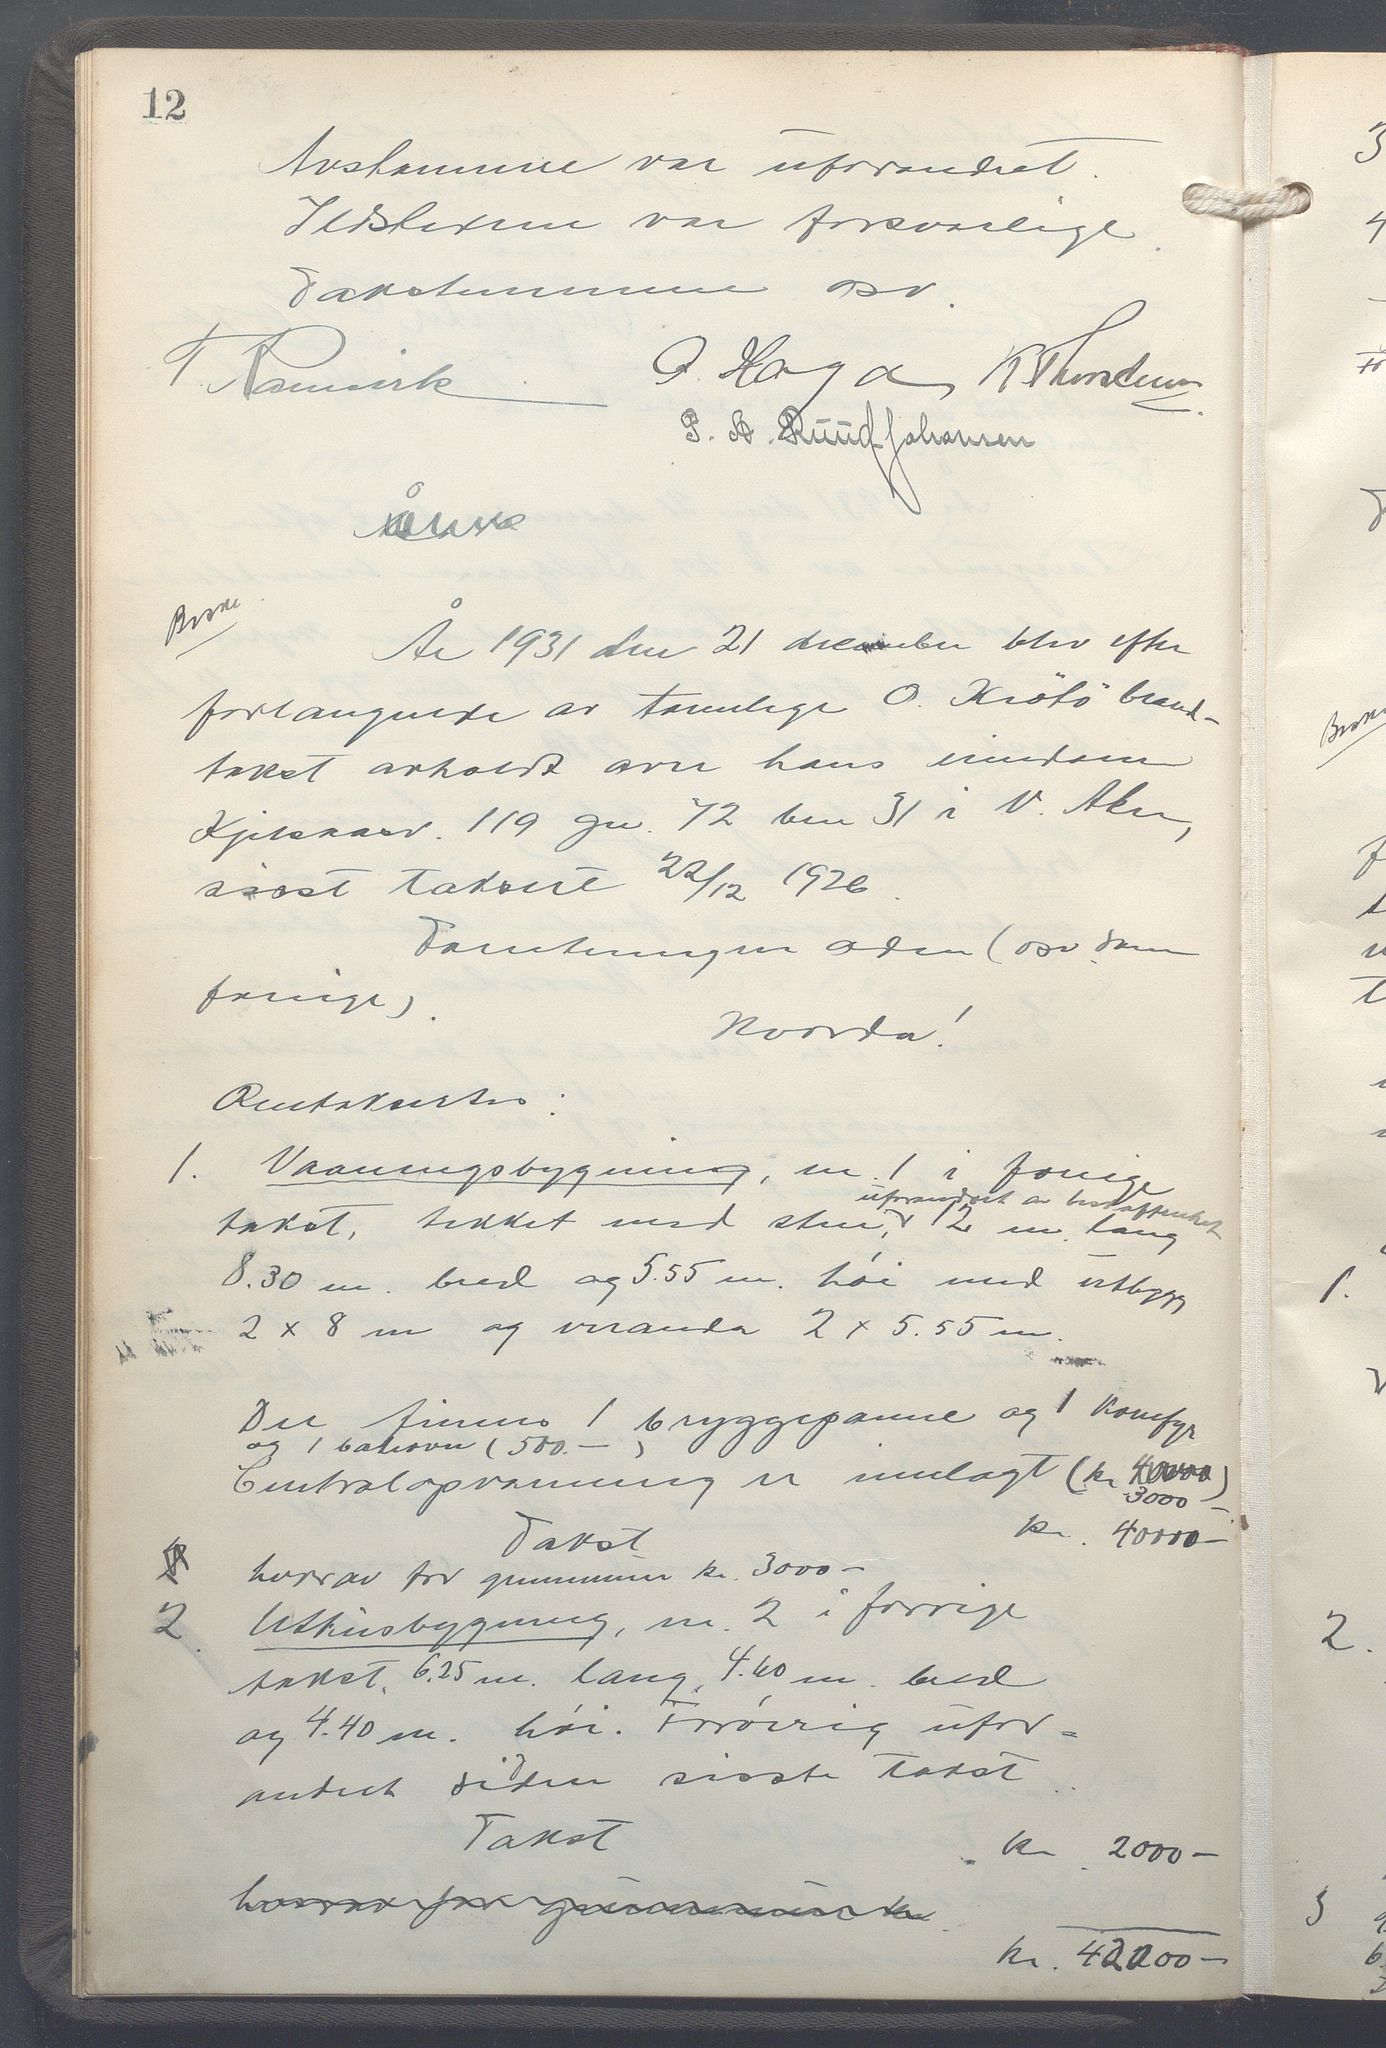 12
Avstannene var uforandret.
Ildstedene var forsvarlige.
Takstsummene osv.
T. Ramvik O. Haga, K Thorstensen
P. A. Ruud Johansen
Brukt
År 1931 den 21 december blev efter
forlangende av tannlege O. Krötö brand-
takst avholdt over hans eiendom
Kjelsaasv. 119 gn. 72 bnr 31 i V. Aker,
sisst taksert 22/12 1926.
Forretningen aden (osv. som
forrige).
Hvorda!
Omtaksertes:
1. Vaaningsbygning, nr. 1 i forrige
uforandret av beskaffenhet
takst, tekket med sten, 12 m. lang
8.30 m. bred og 5.55 m. høi med utbygg
2 x 8 m og veranda 2 x 5.55 m.
Der finnes 1 bryggepanne og 1 komfyr
og 1 bakovn (500.-)
Centralopvarming er innlagt (kr. 4000)
3000-
Takst kr. 40000-
hvorav for grunnmur kr. 3000-
2. Uthusbygning, nr. 2 i forrige
takst, 6.25 m. lang, 4.60 m. bred
og 4.40 m. høi. Forøvrig ufor-
andret siden sisste takst.
Takst kr. 2000-
hvorav for grunnmur kr
kr. 42000-
Brukt
1.
2.
3